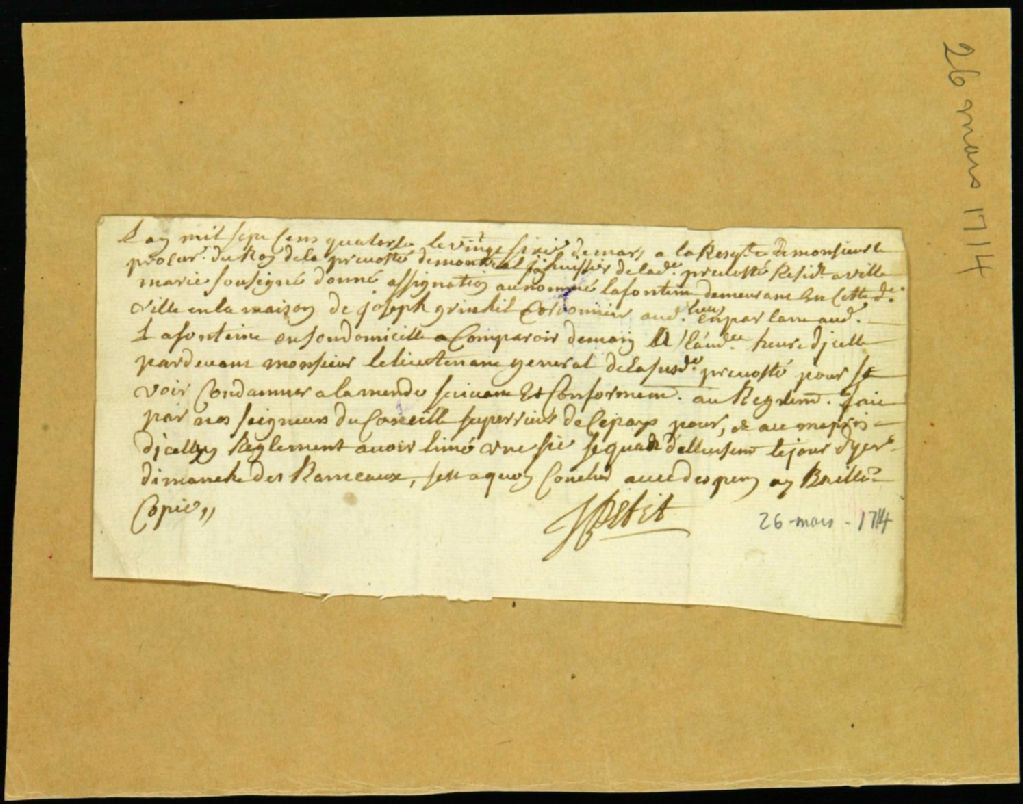 Lan mil sept Cens quatorse le vingt sixie. de mars a la Reqte de monsieur le
procur. du Roy de la prevosté de montreal Jay huissier de lad. prevosté Residt a ville
marie sousigné donné assignation au nommé lafontine demeurant En cette de.
ville en la maison de Joseph Cordonnier aud. lieu En parlant aud.
Lafonteine en son domicille a Comparoir demain heure djcelle
pardevant monsieur le lieutenant general de la susde. prevosté pour se
voir Condamner a lamende suivant Et Conformem. au Reglem. faic
par nos seigneurs du Conseille superrieur de Ce pays pour, au mespris
djcelluy Reglement avoir une le jour dyer
dimanche des Rameaux, sest a quoy Conclud avec despens ay Baillé
Copie,,
Petit
26 mars - 1714
26 mars 1714